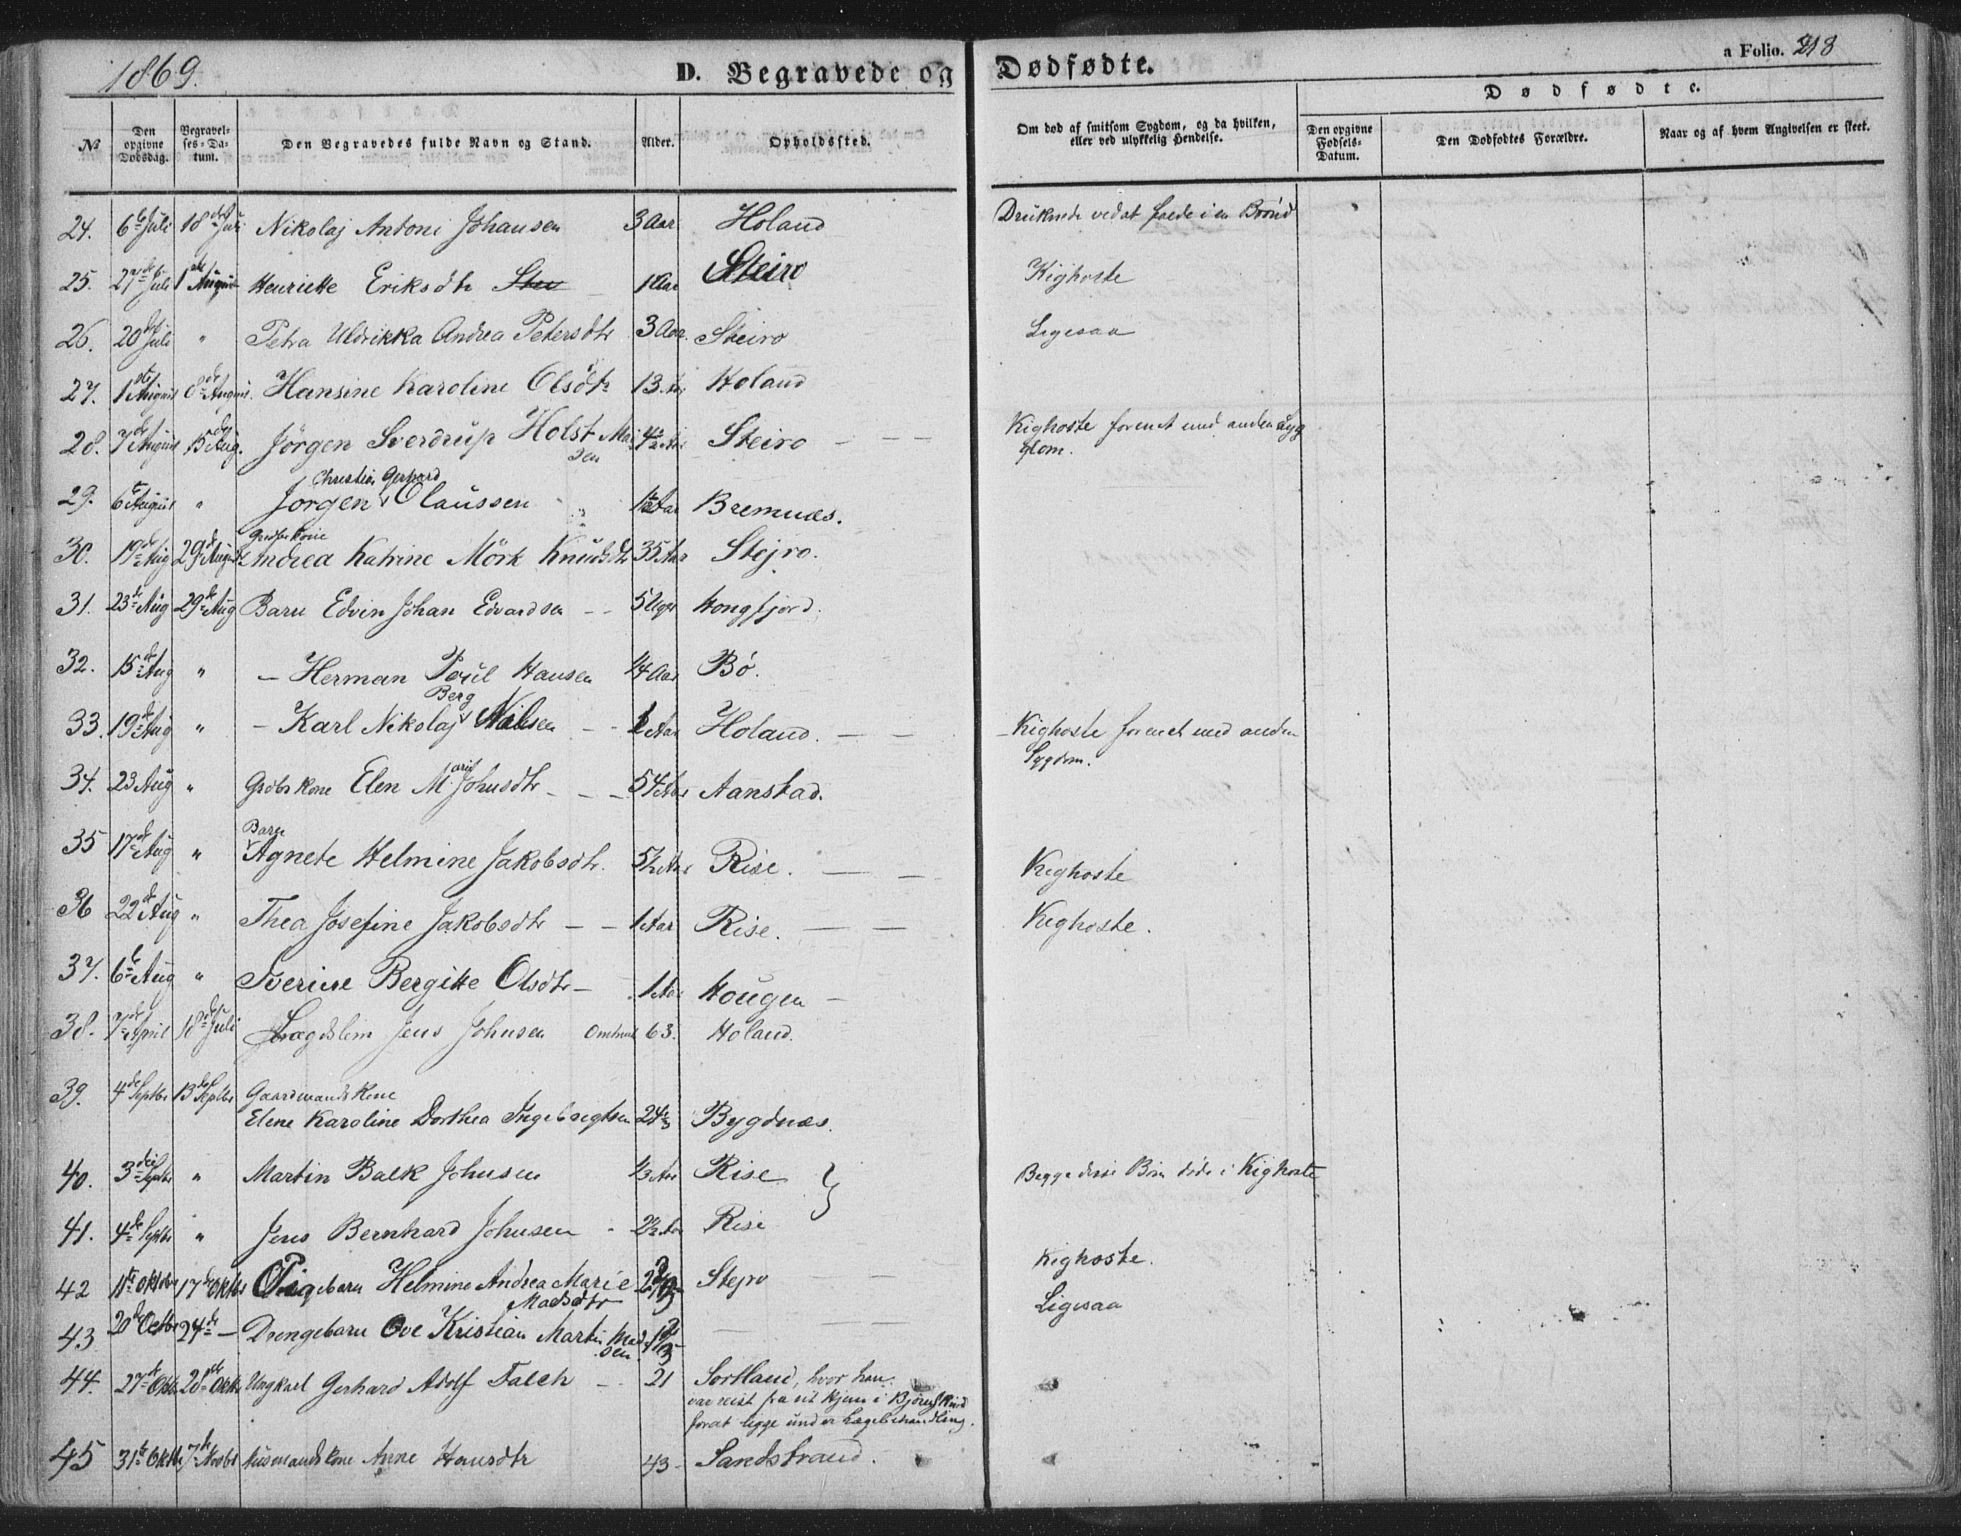 1869.
D. Begravede og Dødfødte.
a Folio. 218
Dødfødte.
№ Den opgivne Dødsdag. Begravelses-Datum. Den Begravedes fulde Navn og Stand. Alder. Opholdssted. Om død af smitsom Sygdom, og da hvilken, eller ved ulykkelig Hendelse. Den opgivne Fødsels-Datum. Den Dødfødtes Forældre. Naar og af hvem Angivelsen er skeet.
24. 6te Juli 18de Juli Nikolaj Antoni Johansen 3 Aar Holand Druknede ved at falde i en Brønd
25. 27de Juli 1ste August Henriette Eriksdtr 1 Aar Steiro Kighoste
26. 20de Juli " Petra Uldrikka Andrea Petersdtr 3 Aar. Steiro Ligesaa
27. 1ste August 8de August. Hansine Karoline Olsdtr 13 Holand
28. 7de August 15de Aug. Jörgen Sverdrup Holst Steiro — — — Kighoste forenet med anden Syg
dom.
Christian Gerhard
29. 6te August " Jörgen Olaussen Bremnæs.
30. 19de Aug 29de August Andrea Katrine Mörk Knudsdtr 35 Aar Stejro.
31. 23de Aug 29de Aug Barn Edvin Johan Edvardsen — 5 Uger Hongfjord.
32. 15de Aug " — Herman Poul Hansen Aar Bø.
Berg
33. 19de Aug " — Karl Nikolaj Nilsen — Aar Holand. — — Kighoste forenet med anden
Sygdom.
34. 23 Aug " Gdbr kone Elen Marit Johnsdtr — — — 54 Aar Aanstad.
Barn
35 17de Aug " Agnete Helmine Jakobsdtr. 5½ Aar Rise. — — Kighoste
36 22de Aug " Thea Josefine Jakobsdtr — — 1 Aar Rise. — — Kighoste.
37. 6te Aug " Sverine Bergitte Olsdtr — 1 Aar Hougen —
38. 7de April 18de Juli Lægdslem Jens Johnsen omtrent 63. Holand.
39. 4de Septbr 13de Septbr Gaardmandskone
Elene Karoline Dorthea Ingebrigtsen Bygdnæs.
40. 3die Septbr " Martin Balk Johnsen Rise } Begge disse Börn døde i Kighoste
41. 4de Septbr " Jens Bernhard Johnsen 2½ Aar Rise
42 11te Oktobr 17de Oktbr Pigebarn Helmine Andrea Marie Stejro — — Kighoste.
Madsdtr
43 20de Octbr 24de — Drengebarn Ove Kristian Martin Mad
sen — — — Ligesaa
44. 27de Oktb. 28de Oktb. Ungkarl Gerhard Adolf Falch — 21 Sortland, hvor han
var reist fra sit Hjem i
forat ligge under Lægebehandling.
45 31te Oktbr 7de Novbr Husmandskone Anne Hansdtr 43 Sandstrand.